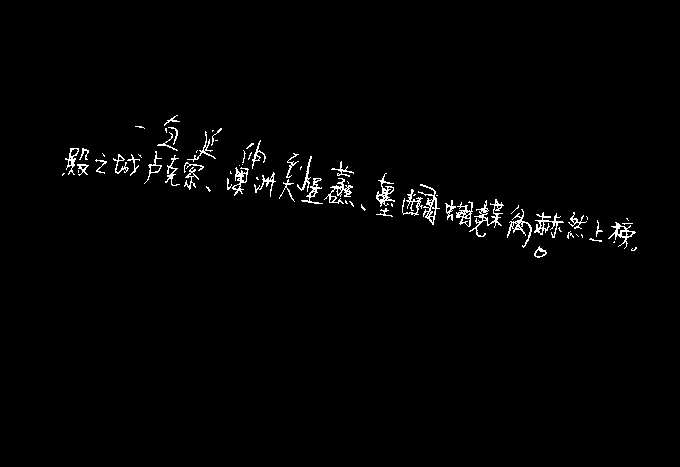 一直延伸到
殿之城卢克索、澳洲大堡礁、墨西哥蝴蝶赫然上榜。